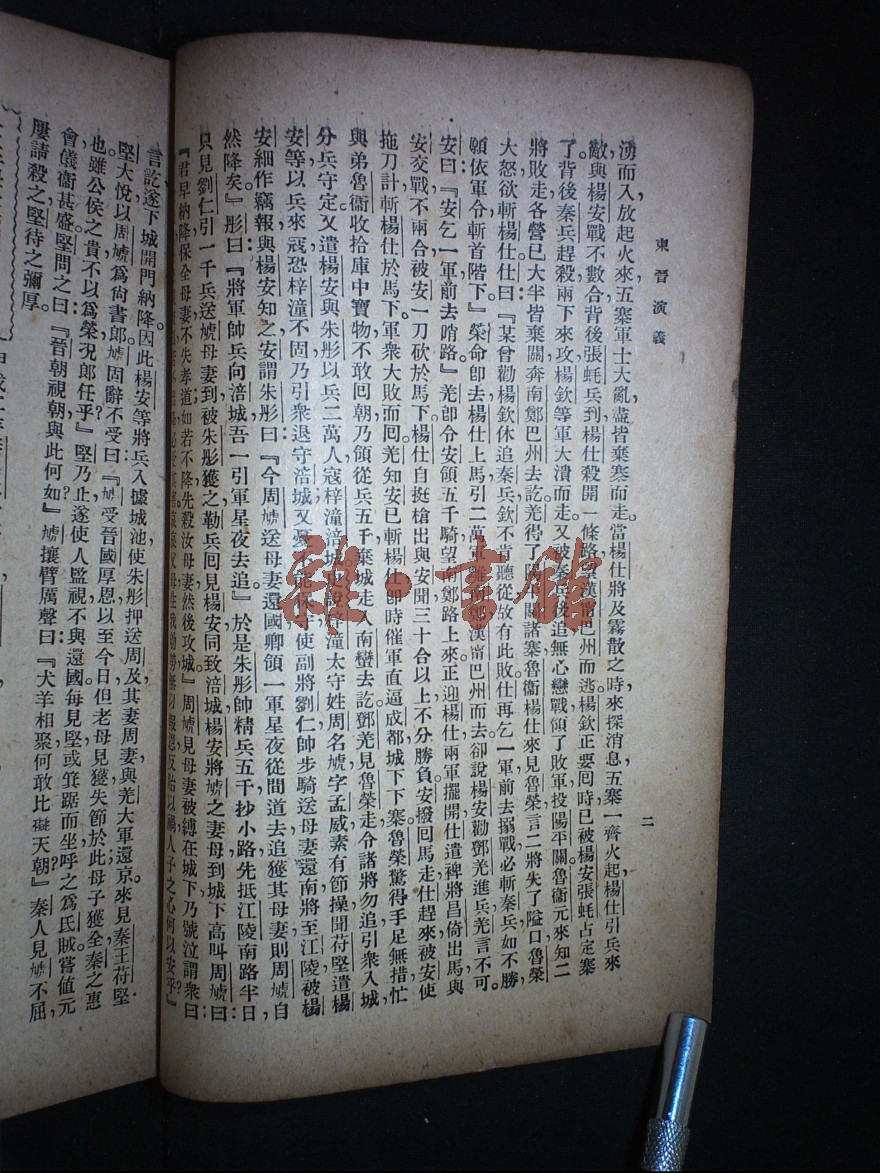 東晉演義
二
湧而入,放起火來,五寨軍士大亂,盡皆棄寨而走。當楊仕將及霧散之時,來探消息,五寨一齊火起,楊仕引兵來
敵,與楊安戰不數合,背後張蚝兵到,楊仕殺開一條路,望漢甯巴州而逃。楊欽正要囘時,已被楊安張蚝占定寨
了。背後秦兵趕殺,兩下來攻,楊欽等軍大潰而走,又被秦兵後追,無心戀戰,領了敗軍投陽平關。魯衞元來知二
將敗走,各營已大半皆棄關奔南鄭巴州去訖。羌得了陽平關諸寨,魯衞楊仕來見魯榮,言二將失了隘口,魯榮
大怒,欲斬楊仕。仕曰:『某曾勸楊欽休追秦兵,欽不肯聽從,故有此敗。仕再乞一軍前去搦戰,必斬秦兵,如不勝,
願依軍令斬首階下。』榮命卽去。楊仕上馬引二萬軍離南鄭漢甯巴州而去。卻說楊安勸鄧羌進兵,羌言不可。
安曰:『安乞一軍前去哨路。』羌卽令安領五千騎,望南鄭路上來,正迎楊仕。兩軍擺開,仕遣裨將昌倚出馬,與
安交戰,不兩合,被安一刀砍於馬下。楊仕自挺槍出,與安聞三十合以上,不分勝負。安撥囘馬走,仕趕來,被安使
拖刀計斬楊仕於馬下,軍衆大敗而囘。羌知安已斬楊仕,卽時催軍直逼成都城下下寨。魯榮驚得手足無措,忙
與弟魯衞收拾庫中寶物,不敢囘朝,乃領從兵五千,棄城走入南蠻去訖。鄧羌見魯榮走,令諸將勿追,引衆入城,
分兵守定,又遣楊安與朱肜以兵二萬人寇梓潼涪城。説梓潼太守姓周名虓字孟威,素有節操,聞苻堅遣楊
安等以兵來寇,恐梓潼不固,乃引衆退守涪城。又憂不能保守,使副將劉仁帥步騎送母妻還南,將至江陵,被楊
安細作竊報與楊安知之。安謂朱肜曰:『今周虓送母妻還國,卿領一軍星夜從間道去追,獲其母妻,則周虓自
然降矣。』肜曰:『將軍帥兵向涪城,吾一引軍星夜去追。』於是朱肜帥精兵五千,抄小路先抵江陵南路,半日,
只見劉仁引一千兵送虓母妻到,被朱肜獲之,勒兵囘見楊安,同致涪城。楊安將虓之妻母到城下高叫周虓曰:
『君早納降,保全母妻,不失孝道;如若不降,先殺汝母妻,然後攻城。』周虓見母妻被縛在城下,乃號泣謂衆曰:
父母生我劬勞,無以報恩,反貽以禍,人子之心何以安乎?』
言訖,遂下城開門納降。因此楊安等將兵入據城池,使朱肜押送周及其妻周妻與羌大軍還京,來見秦王苻堅。
堅大悅,以周虓爲尙書郞。虓固辭不受曰:『虓受晉國厚恩,以至今日,但老母見獲,失節於此,母子獲全,秦之惠
也。雖公侯之貴,不以爲榮,况郞任乎?』堅乃止,遂使人監視,不與還國。每見堅,或箕踞而坐,呼之爲氐賊。嘗値元
會,儀衞甚盛,堅問之曰:『晉朝視朝,與此何如?』虓攘臂厲聲曰:『犬羊相聚,何敢比礙天朝?』秦人見虓不屈,
屢請殺之,堅待之彌厚。
雜·書館